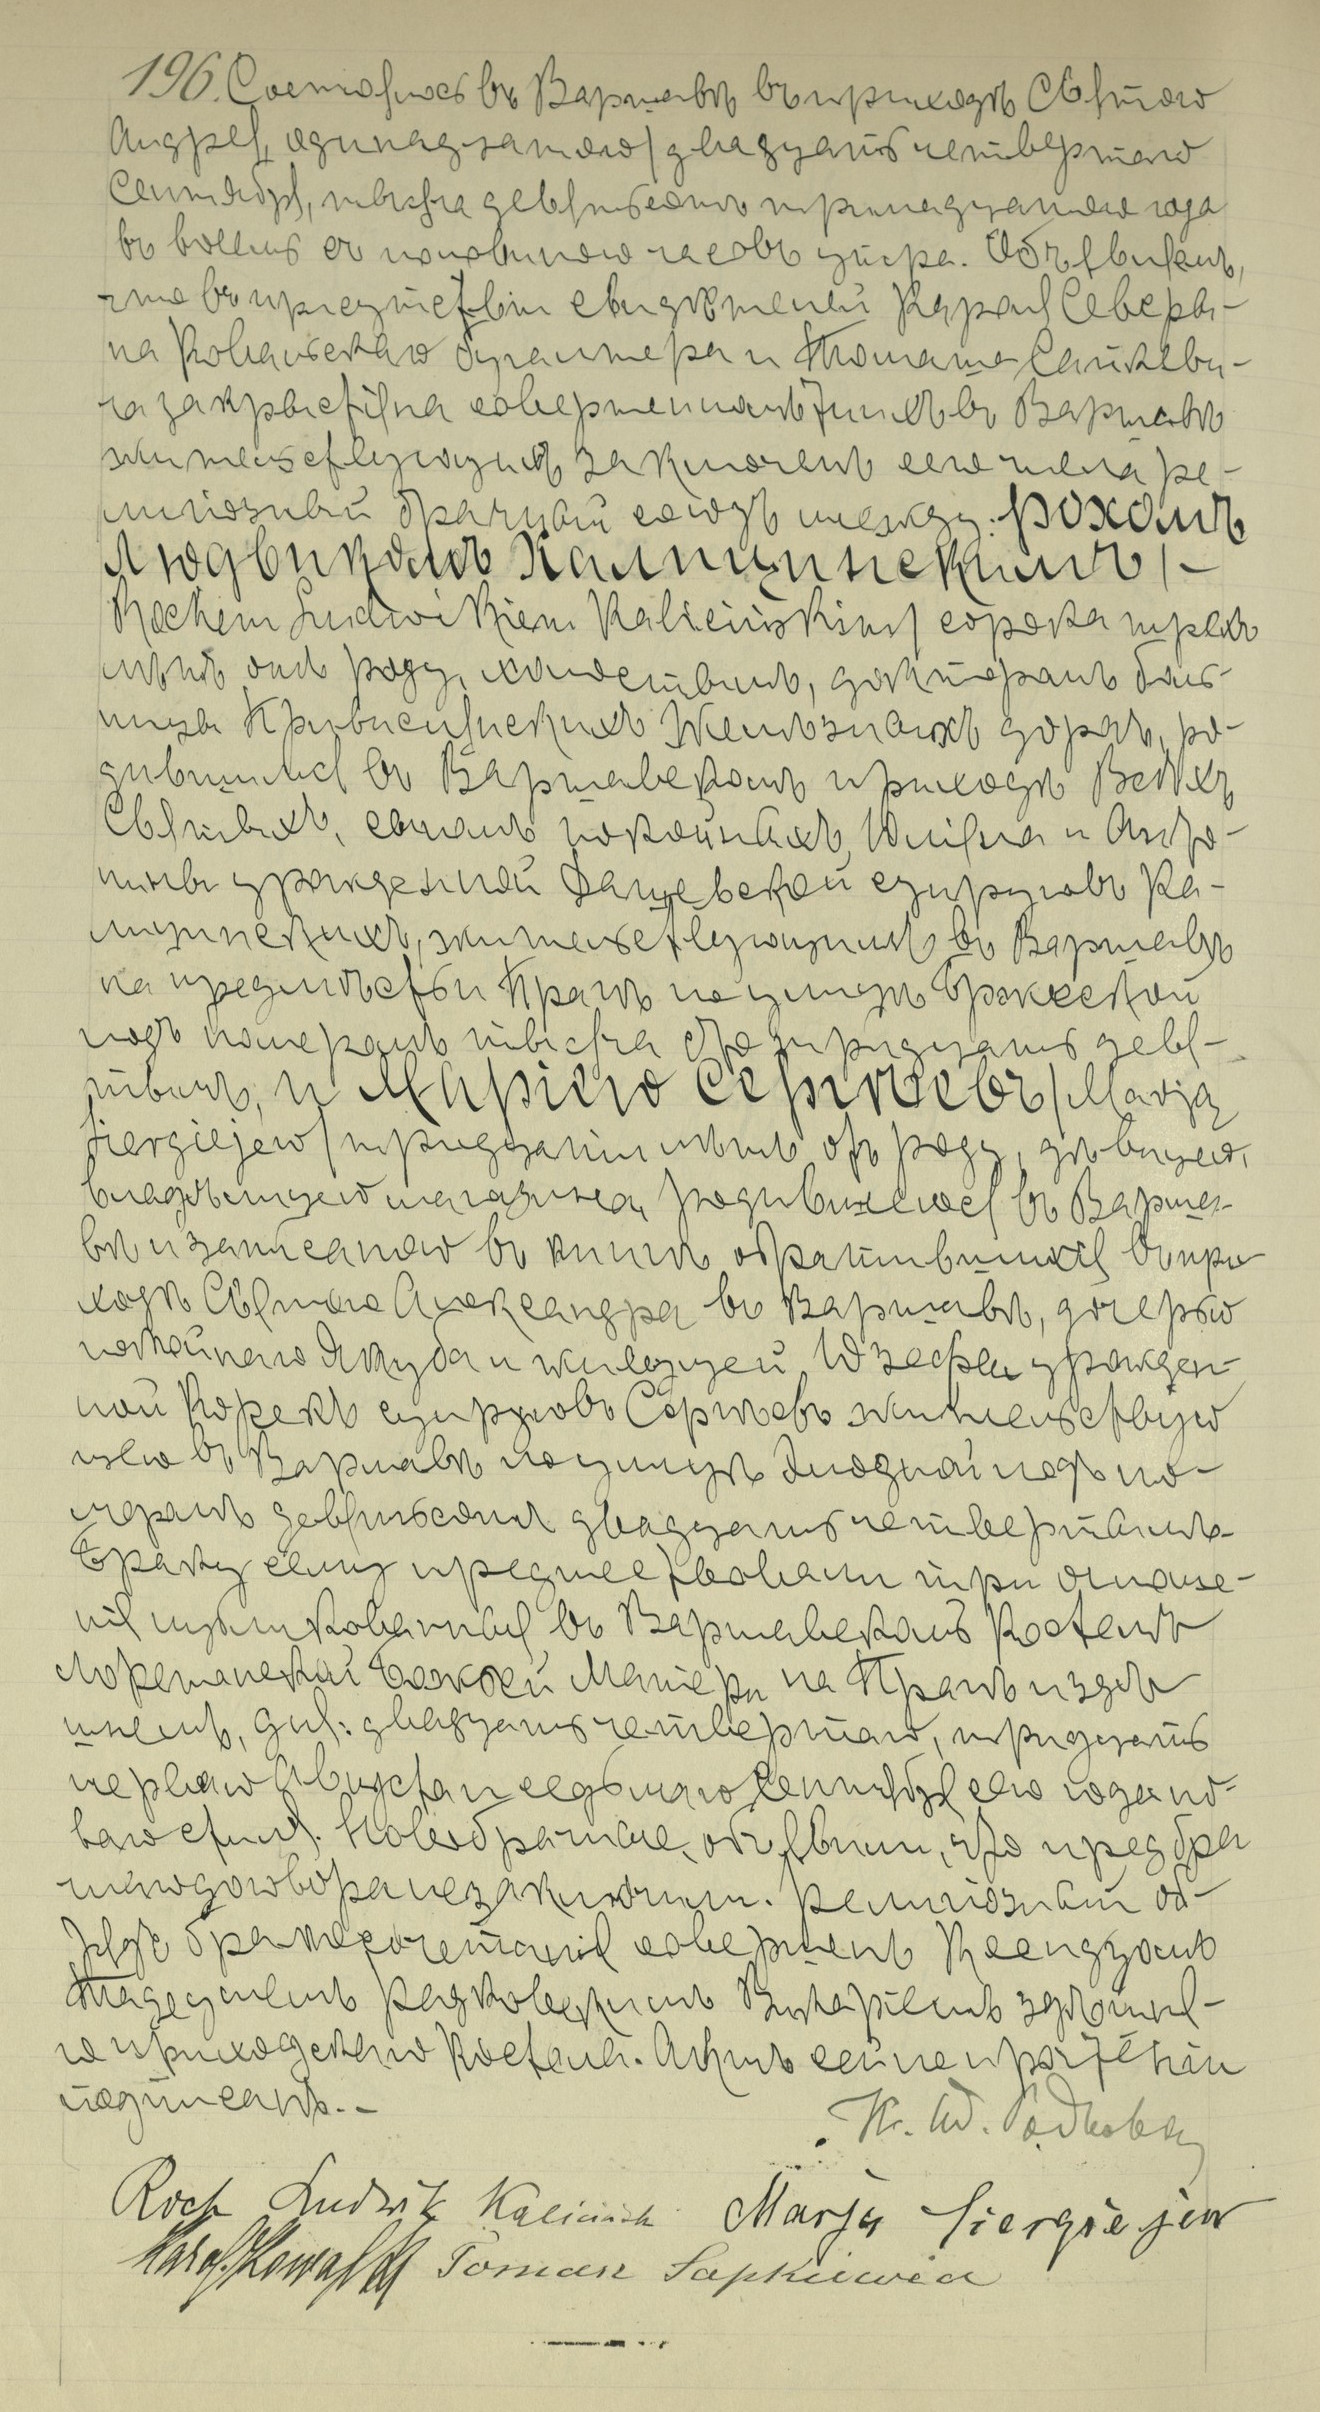 196. Состоялось въ Варшавѣ въ приходѣ Святого
Андрея, одинадцатого/двадцать четвертого
Сентября, тысяча девятьсотъ тринадцатого года
въ восемь съ половиною часовъ утра. Объявляемъ,
что въ присутствіи свидѣтелей Кароля Северы-
на Ковальскаго бухгалтера и Томаша Сапкеви-
ча закрыстіяна совершеннолѣтнихъ въ Варшавѣ
жительствующихъ заключенъ сего числа ре-
лигіозный брачный союзъ между: Рохомъ
Людвикомъ Калицинскимъ /-
Rochem Ludwikiem Kalicińskim/ сорока трехъ
лѣтъ отъ роду, холостымъ, докторомъ боль-
ницы Привислинскихъ Желѣзныхъ дорогъ, ро-
дившимся въ Варшавскомъ приходѣ Всѣхъ
Святыхъ, сыномъ покойныхъ, Юліяна и Анто-
нины урожденной Дашевской супруговъ Ка-
лицинскихъ, жительствующимъ въ Варшавѣ
на предмѣстьи Прагѣ по улицѣ Бржеской
подъ номеромъ тысяча сто тридцать девя-
тымъ, и Маріею Сергѣевъ /Marją
Siergiejew/ тридцати лѣтъ отъ роду, дѣвицею,
владѣлицею магазина, родившеюся въ Варша-
вѣ и записаною въ книгѣ обратившихся въ при-
ходѣ Святого Александра въ Варшавѣ, дочерью
покойнаго Якуба и живущей Юзефы урожден-
ной Корекъ супруговъ Сергѣевъ жительствую-
щею въ Варшавѣ по улицѣ подъ но-
меромъ девятьсотъ двадцать четвертымъ.
Браку сему предшествовали три оглаше-
нія публикованныя въ Варшавскомъ Костелѣ
Лоретанской Божьей Матери на Прагѣ и здѣ-
шнемъ, дня: двадцать четвертого, тридцать
первого Августа и седьмого Сентября сего года но-
вого стиля. Новобрачные объявили, что предбра-
чного договора не заключили. Религіозный об-
рядъ бракосочетанія совершенъ Ксендзомъ
Тадеушемъ Радковскимъ Викаріемъ здѣшня-
го приходскаго Костела. Актъ сей по прочтеніи
подписанъ.-
Roch Ludwik Kaliciński Marja Siergiejew
Karol Kowalski Tomasz Sapkiewicz